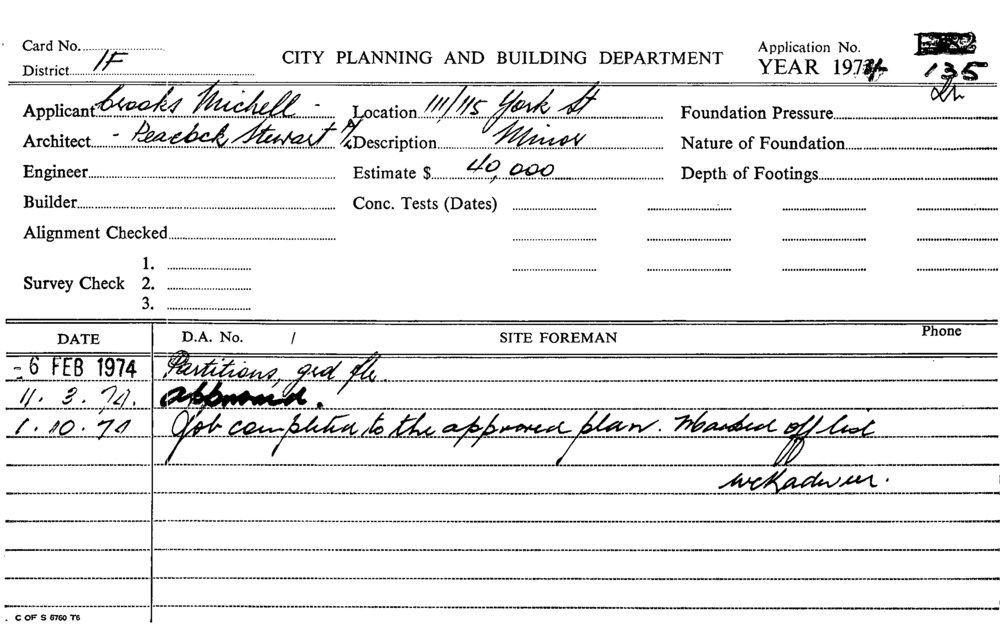 Card No.
District 1F
CITY PLANNING AND BUILDING DEPARTMENT
Application No.
YEAR 1974 135
Applicant Crooks Michell -
Location 111/115 York St
Foundation Pressure
Architect - Peacock Stewart P/L
Description Minor
Nature of Foundation
Engineer
Estimate $ 40,000
Depth of Footings
Builder
Conc. Tests (Dates)
Alignment Checked
Survey Check
1.
2.
3.
DATE
D.A. No. /
SITE FOREMAN
Phone
- 6 FEB 1974 Partitions, grd flr.
11. 3. 74. approved.
1. 10. 74 Job completed to the approved plan. Marked off list
C OF S 5760 T6